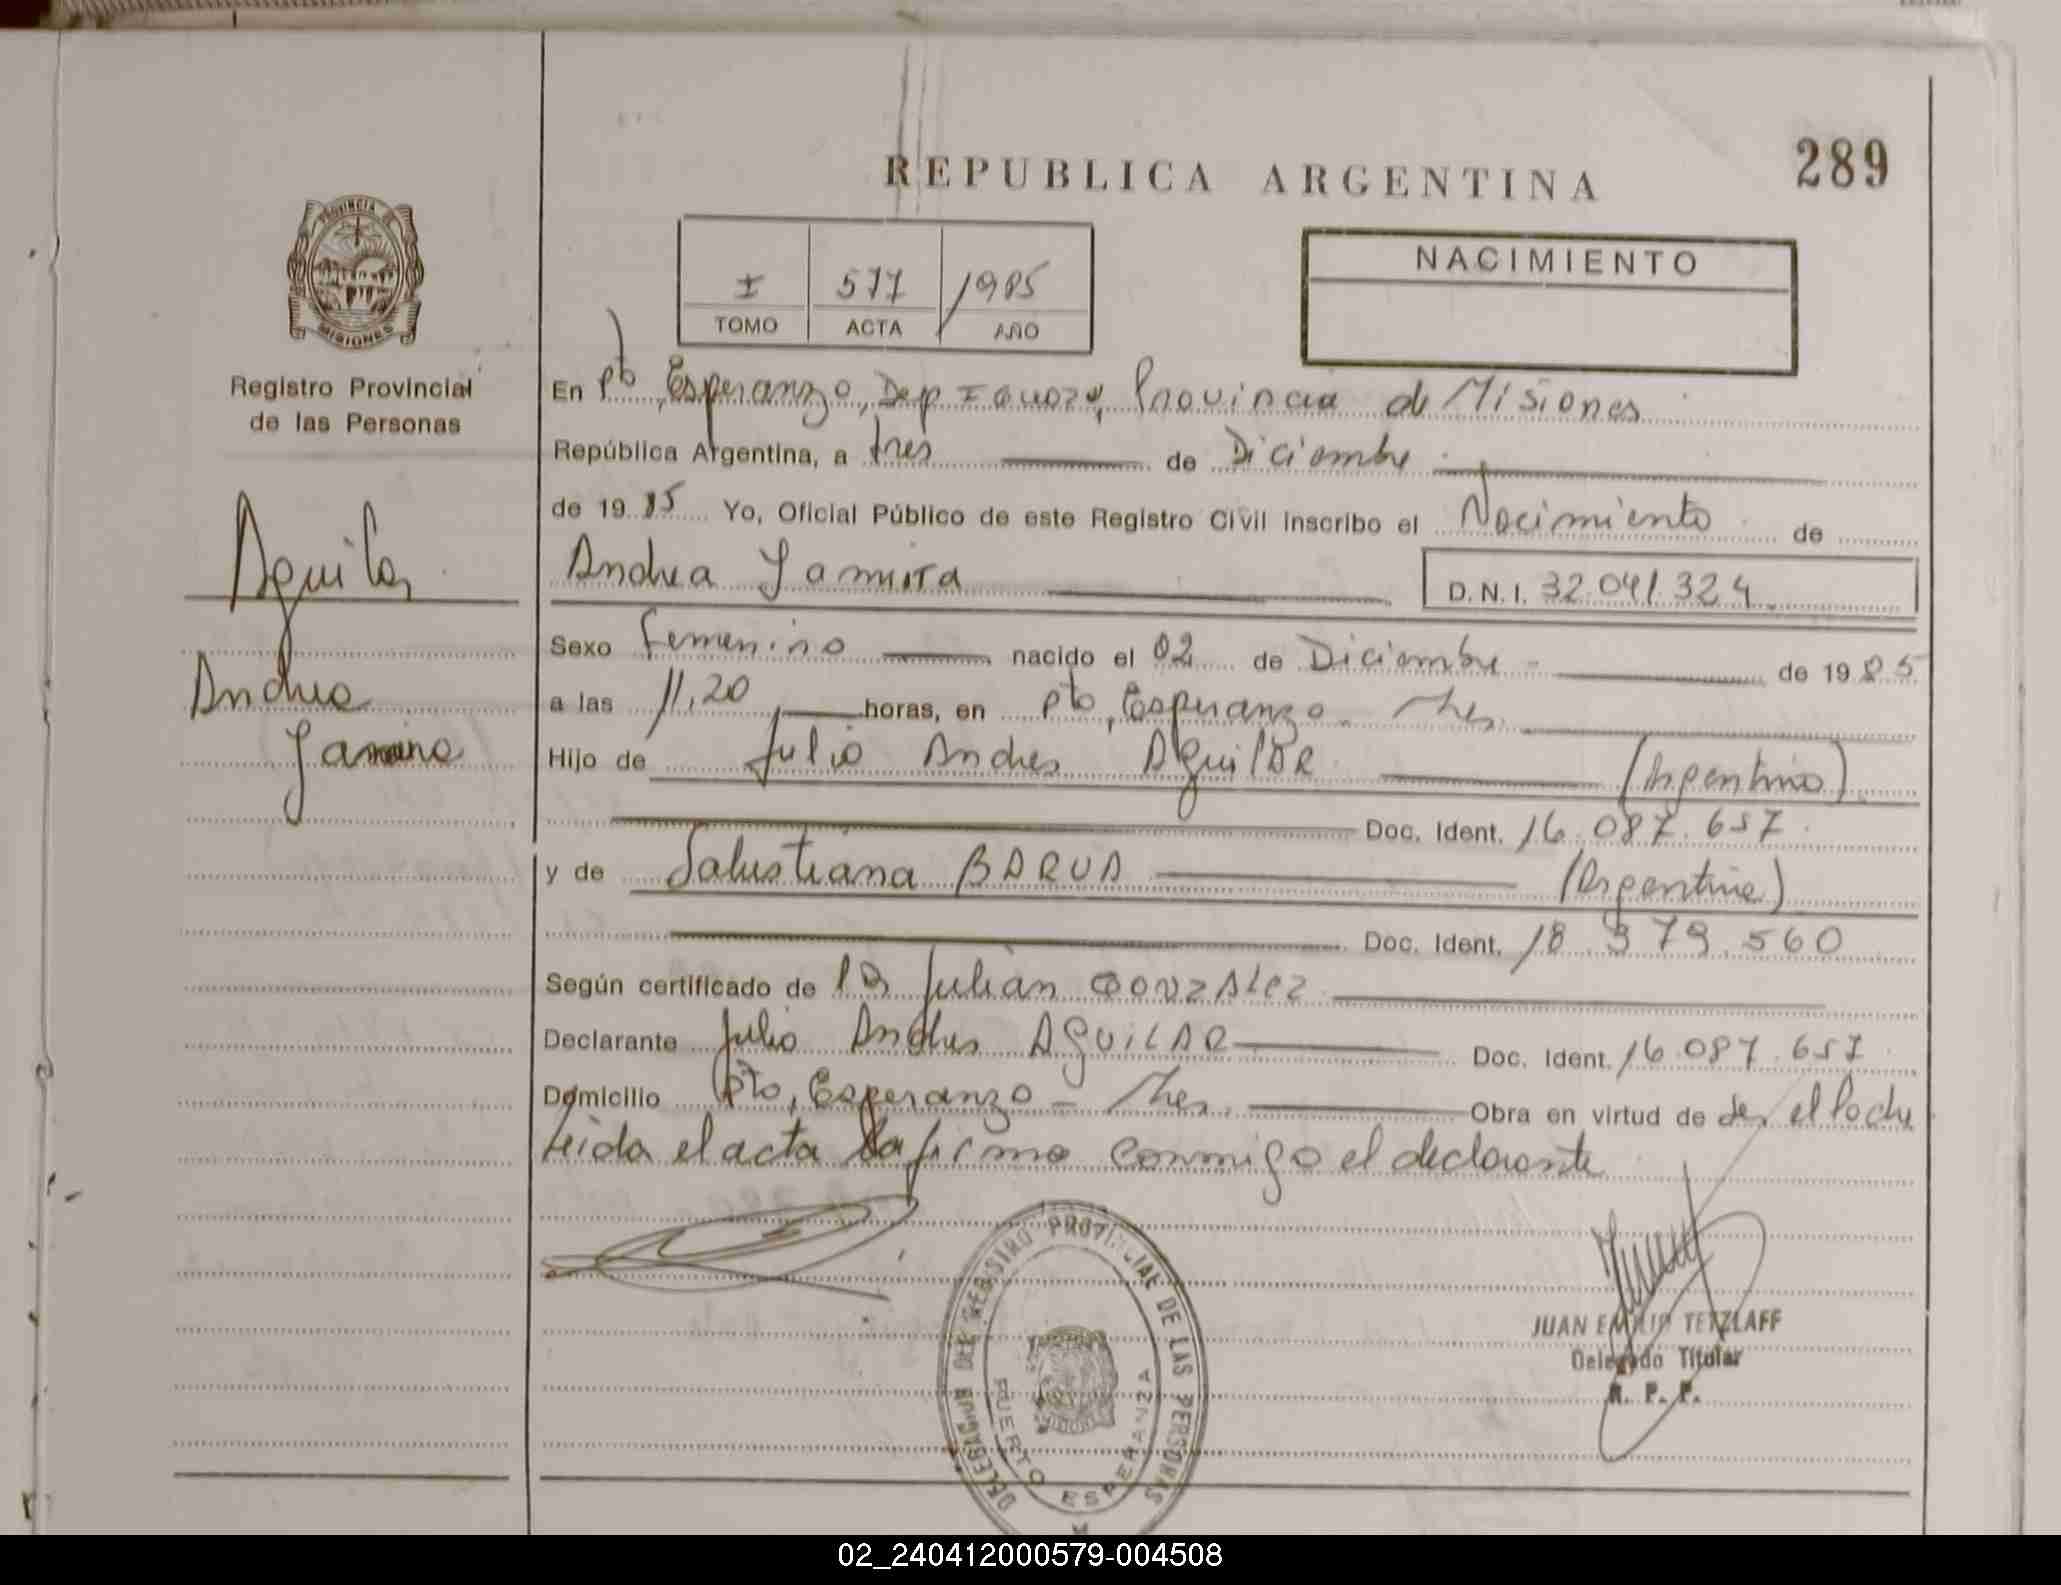 REPUBLICA ARGENTINA
289
PROVINCIA DE
MISIONES
Registro Provincial
de las Personas
Aguilar
Andrea
I 577 1985
TOMO ACTA AÑO
NACIMIENTO
En Pto, Esperanza, Dep Iguazu, Provincia de Misiones
República Argentina, a tres de Diciembre
de 19 85 Yo, Oficial Público de este Registro Civil inscribo el Nacimiento de
Andrea
D.N.I. 32.041.324
Sexo Femenino nacido el 02 de Diciembre de 19 85
a las 11,20 horas, en Pto, Esperanza - Mnes.
Hijo de Julio Andres AguilAR (Argentino)
Doc. Ident. 16.087.657
y de Salustiana BARUA (Argentina)
Doc. Ident. 18.379.560
Según certificado de Julian GONZALEZ
Declarante Julio Andres AGUILAR Doc. Ident. 16.087.657
Domicilio Pto, Esperanza - Mnes. Obra en virtud de ser el Padre
Leida el acta la firma conmigo el declarante
DELEGACION DEL REGISTRO PROVINCIAL DE LAS PERSONAS
PUERTO ESPERANZA
JUAN EMILIO TETZLAFF
Delegado Titular
R. P. P.
02_240412000579-004508